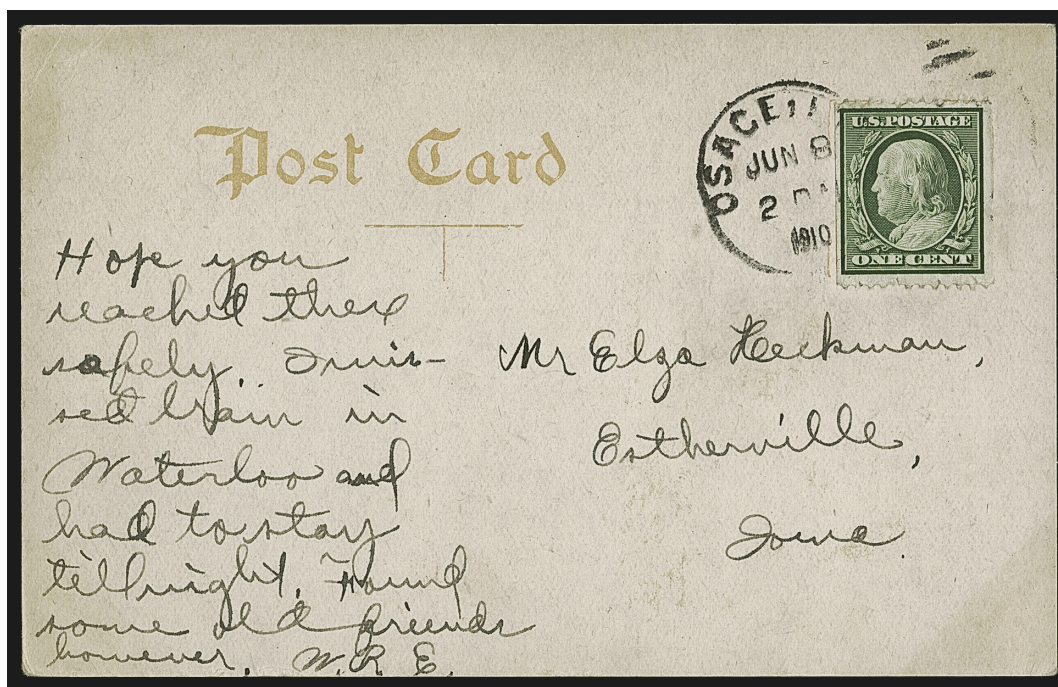 Post Card
OSAGE, I
JUN 8
2
1910
U.S. POSTAGE
ONE CENT
Hope you
reached there
safely. I mis-
sed train in
Waterloo and
had to stay
till night. Found
some old friends
however. W. R. E.
Mr Elza Heckman,
Estherville,
Iowa.